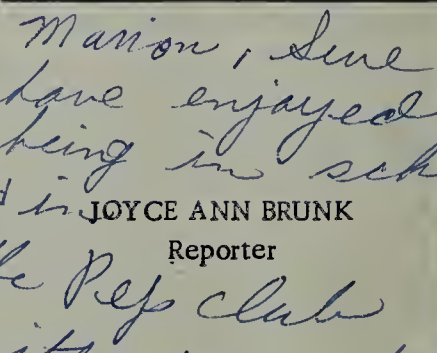 Marion, Sure
have enjoyed
being in sch
in
JOYCE ANN BRUNK
Reporter
Pep Club